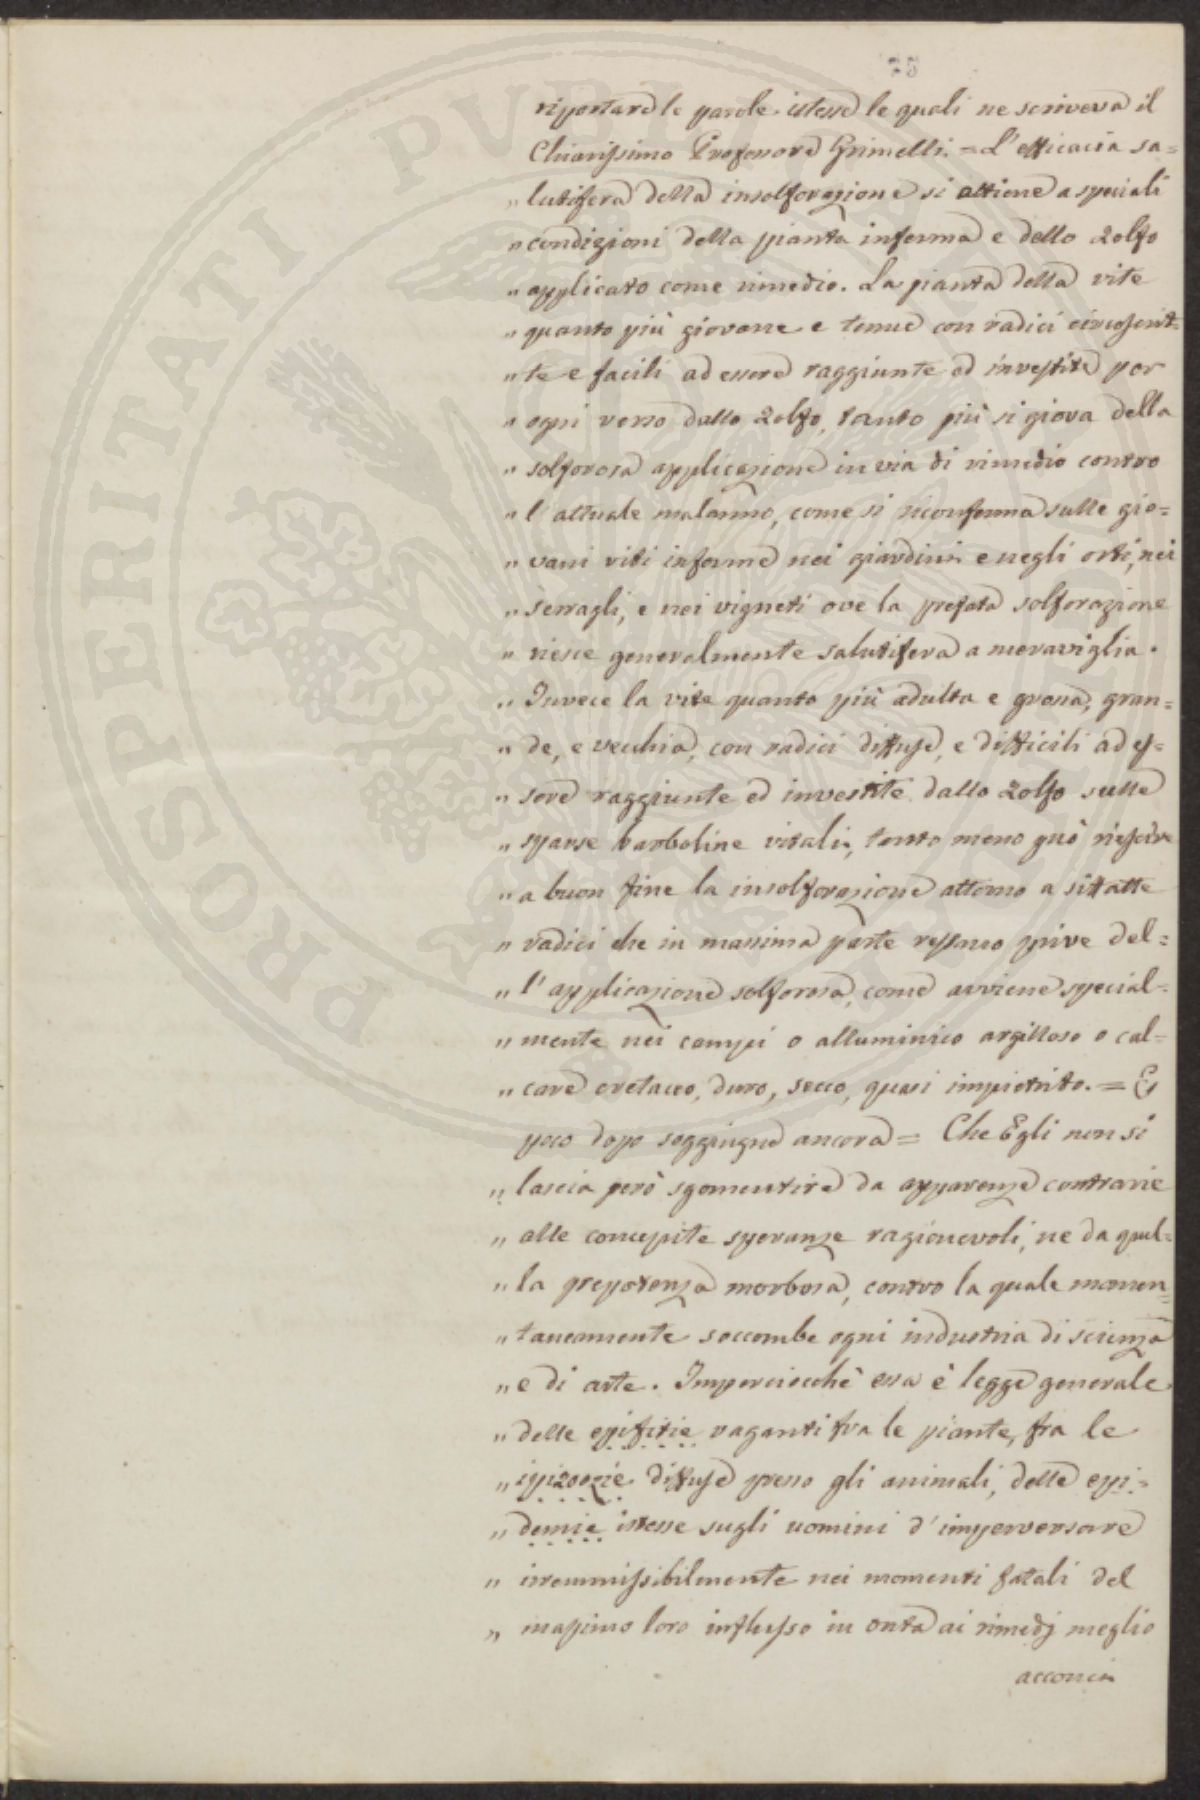 riportare le parole istesse le quali ne scriveva il
Chiarissimo Professore Grimelli. = L'efficacia sa=
„ lutifera della insolforazione si attiene a speciali
„ condizioni della pianta inferma e dello zolfo
„ applicato come rimedio. La pianta della vite
„ quanto più giovane e tenue con radici circoscrit=
„ te e facili ad essere raggiunte ed investite per
„ ogni verso dallo zolfo, tanto più si giova della
„ solforosa applicazione in via di rimedio contro
„ l'attuale malanno, come si riconferma sulle gio=
„ vani viti inferme nei giardini e negli orti, nei
„ serragli, e nei vigneti ove la prefata solforazione
„ riesce generalmente salutifera a meraviglia.
„ Invece la vite quanto più adulta e grossa, gran=
„ de, e vecchia, con radici diffuse, e difficili ad es=
„ sere raggiunte ed investite dallo zolfo sulle
„ sparse barboline vitali, tanto meno può riescire
„ a buon fine la insolforazione attorno a siffatte
„ radici che in massima parte restano prive del=
„ l'applicazione solforosa, come avviene special=
„ mente nei campi o alluminico argilloso o cal=
„ care cretaceo, duro, secco, quasi impietrito. = E
poco dopo soggiugne ancora = Che Egli non si
„ lascia però sgomentire da apparenze contrarie
„ alle concepite speranze ragionevoli, ne da quel=
„ la prepotenza morbosa, contro la quale momen=
„ taneamente soccombe ogni industria di scienza
„ e di arte. Imperciocchè essa è legge generale
„ delle epifitie vaganti fra le piante, fra le
„ ipizoozie diffuse presso gli animali, delle epi=
„ demie istesse sugli uomini d'imperversare
„ irremmissibilmente nei momenti fatali del
„ massimo loro influsso in onta ai rimedj meglio
acconci
PROSPERITATI PVBLICAE